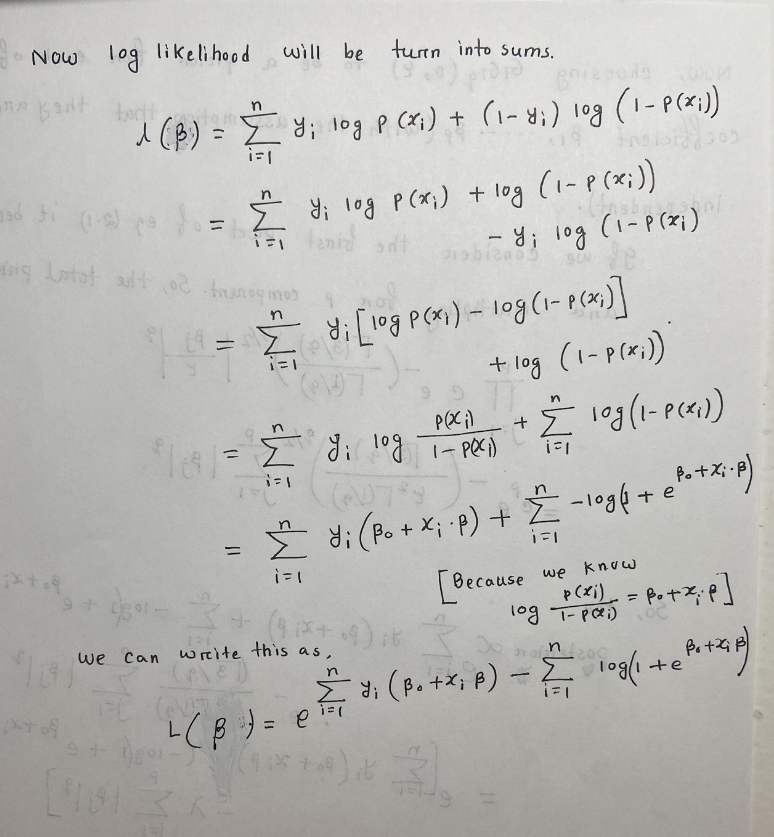 Now log likelihood will be turn into sums.
l(β) = ∑_{i=1}^{n} y_i log p(x_i) + (1 - y_i) log (1 - p(x_i))
= ∑_{i=1}^{n} y_i log p(x_i) + log (1 - p(x_i))
- y_i log (1 - p(x_i)
= ∑_{i=1}^{n} y_i [log p(x_i) - log(1 - p(x_i)]
+ log (1 - p(x_i))
= ∑_{i=1}^{n} y_i log \frac{p(x_i)}{1 - p(x_i)} + ∑_{i=1}^{n} log(1 - p(x_i))
= ∑_{i=1}^{n} y_i (β_0 + x_i · β) + ∑_{i=1}^{n} -log(1 + e^{β_0 + x_i · β})
[Because we know
log \frac{p(x_i)}{1 - p(x_i)} = β_0 + x_i · β]
we can write this as,
L(β) = e^{∑_{i=1}^{n} y_i (β_0 + x_i β) - ∑_{i=1}^{n} log(1 + e^{β_0 + x_i β})}